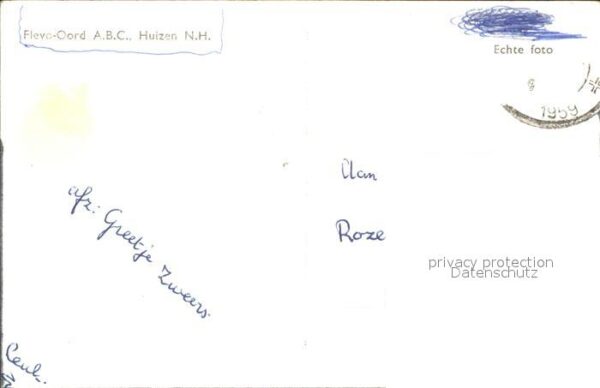 Flevo-Oord A.B.C., Huizen N.H.
Echte foto
1959
Aan
Roze
afz: Greetje Zweers
privacy protection
Datenschutz